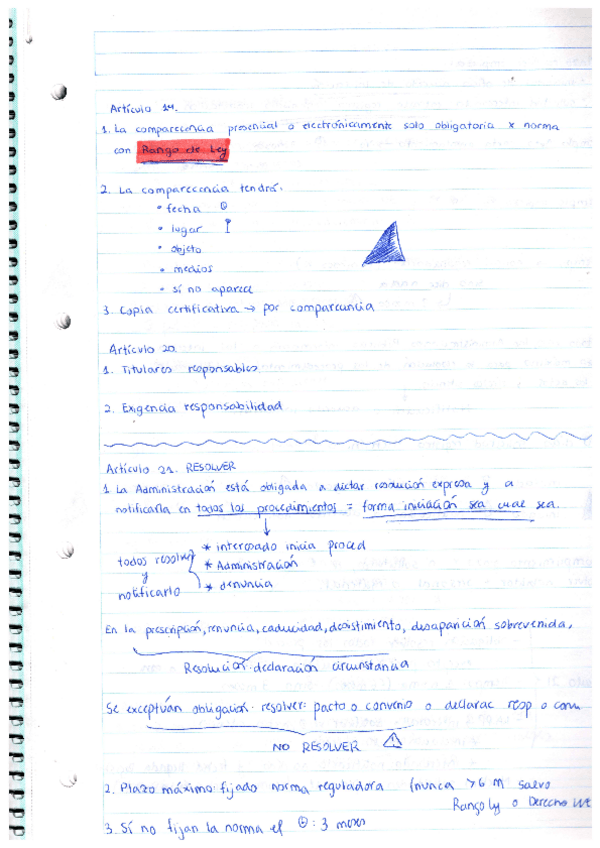 Artículo 19.
1. La comparecencia presencial o electrónicamente solo obligatoria x norma
con Rango de Ley
2. La comparecencia tendrá:
• fecha
• lugar
• objeto
• medios
• sí no aparece
3. Copia certificativa → por comparecencia
Artículo 20.
1. Titulares responsables.
2. Exigencia responsabilidad
Artículo 21. RESOLVER
1 La Administración está obligada a dictar resolución expresa y a
notificarla en todos los procedimientos = forma iniciación sea cual sea.
todos resolver y notificarlo
* interesado inicia proced
* Administración
* denuncia
En la prescripción, renuncia, caducidad, desistimiento, desaparición sobrevenida,
Resolución: declaración circunstancia
Se exceptuán obligación resolver: pacto o convenio o declarac resp o com
NO RESOLVER
2. Plazo máximo: fijado norma reguladora (nunca >6 m salvo
Rango ley o Derecho UE
3. Sí no fijan la norma el : 3 meses